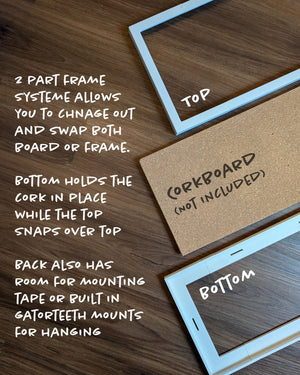 2 PART FRAME
SYSTEME ALLOWS
YOU TO CHNAGE OUT
AND SWAP BOTH
BOARD OR FRAME.
BOTTOM HOLDS THE
CORK IN PLACE
WHILE THE TOP
SNAPS OVER TOP
BACK ALSO HAS
ROOM FOR MOUNTING
TAPE OR BUILT IN
GATORTEETH MOUNTS
FOR HANGING
TOP
CORKBOARD
(NOT INCLUDED)
BOTTOM